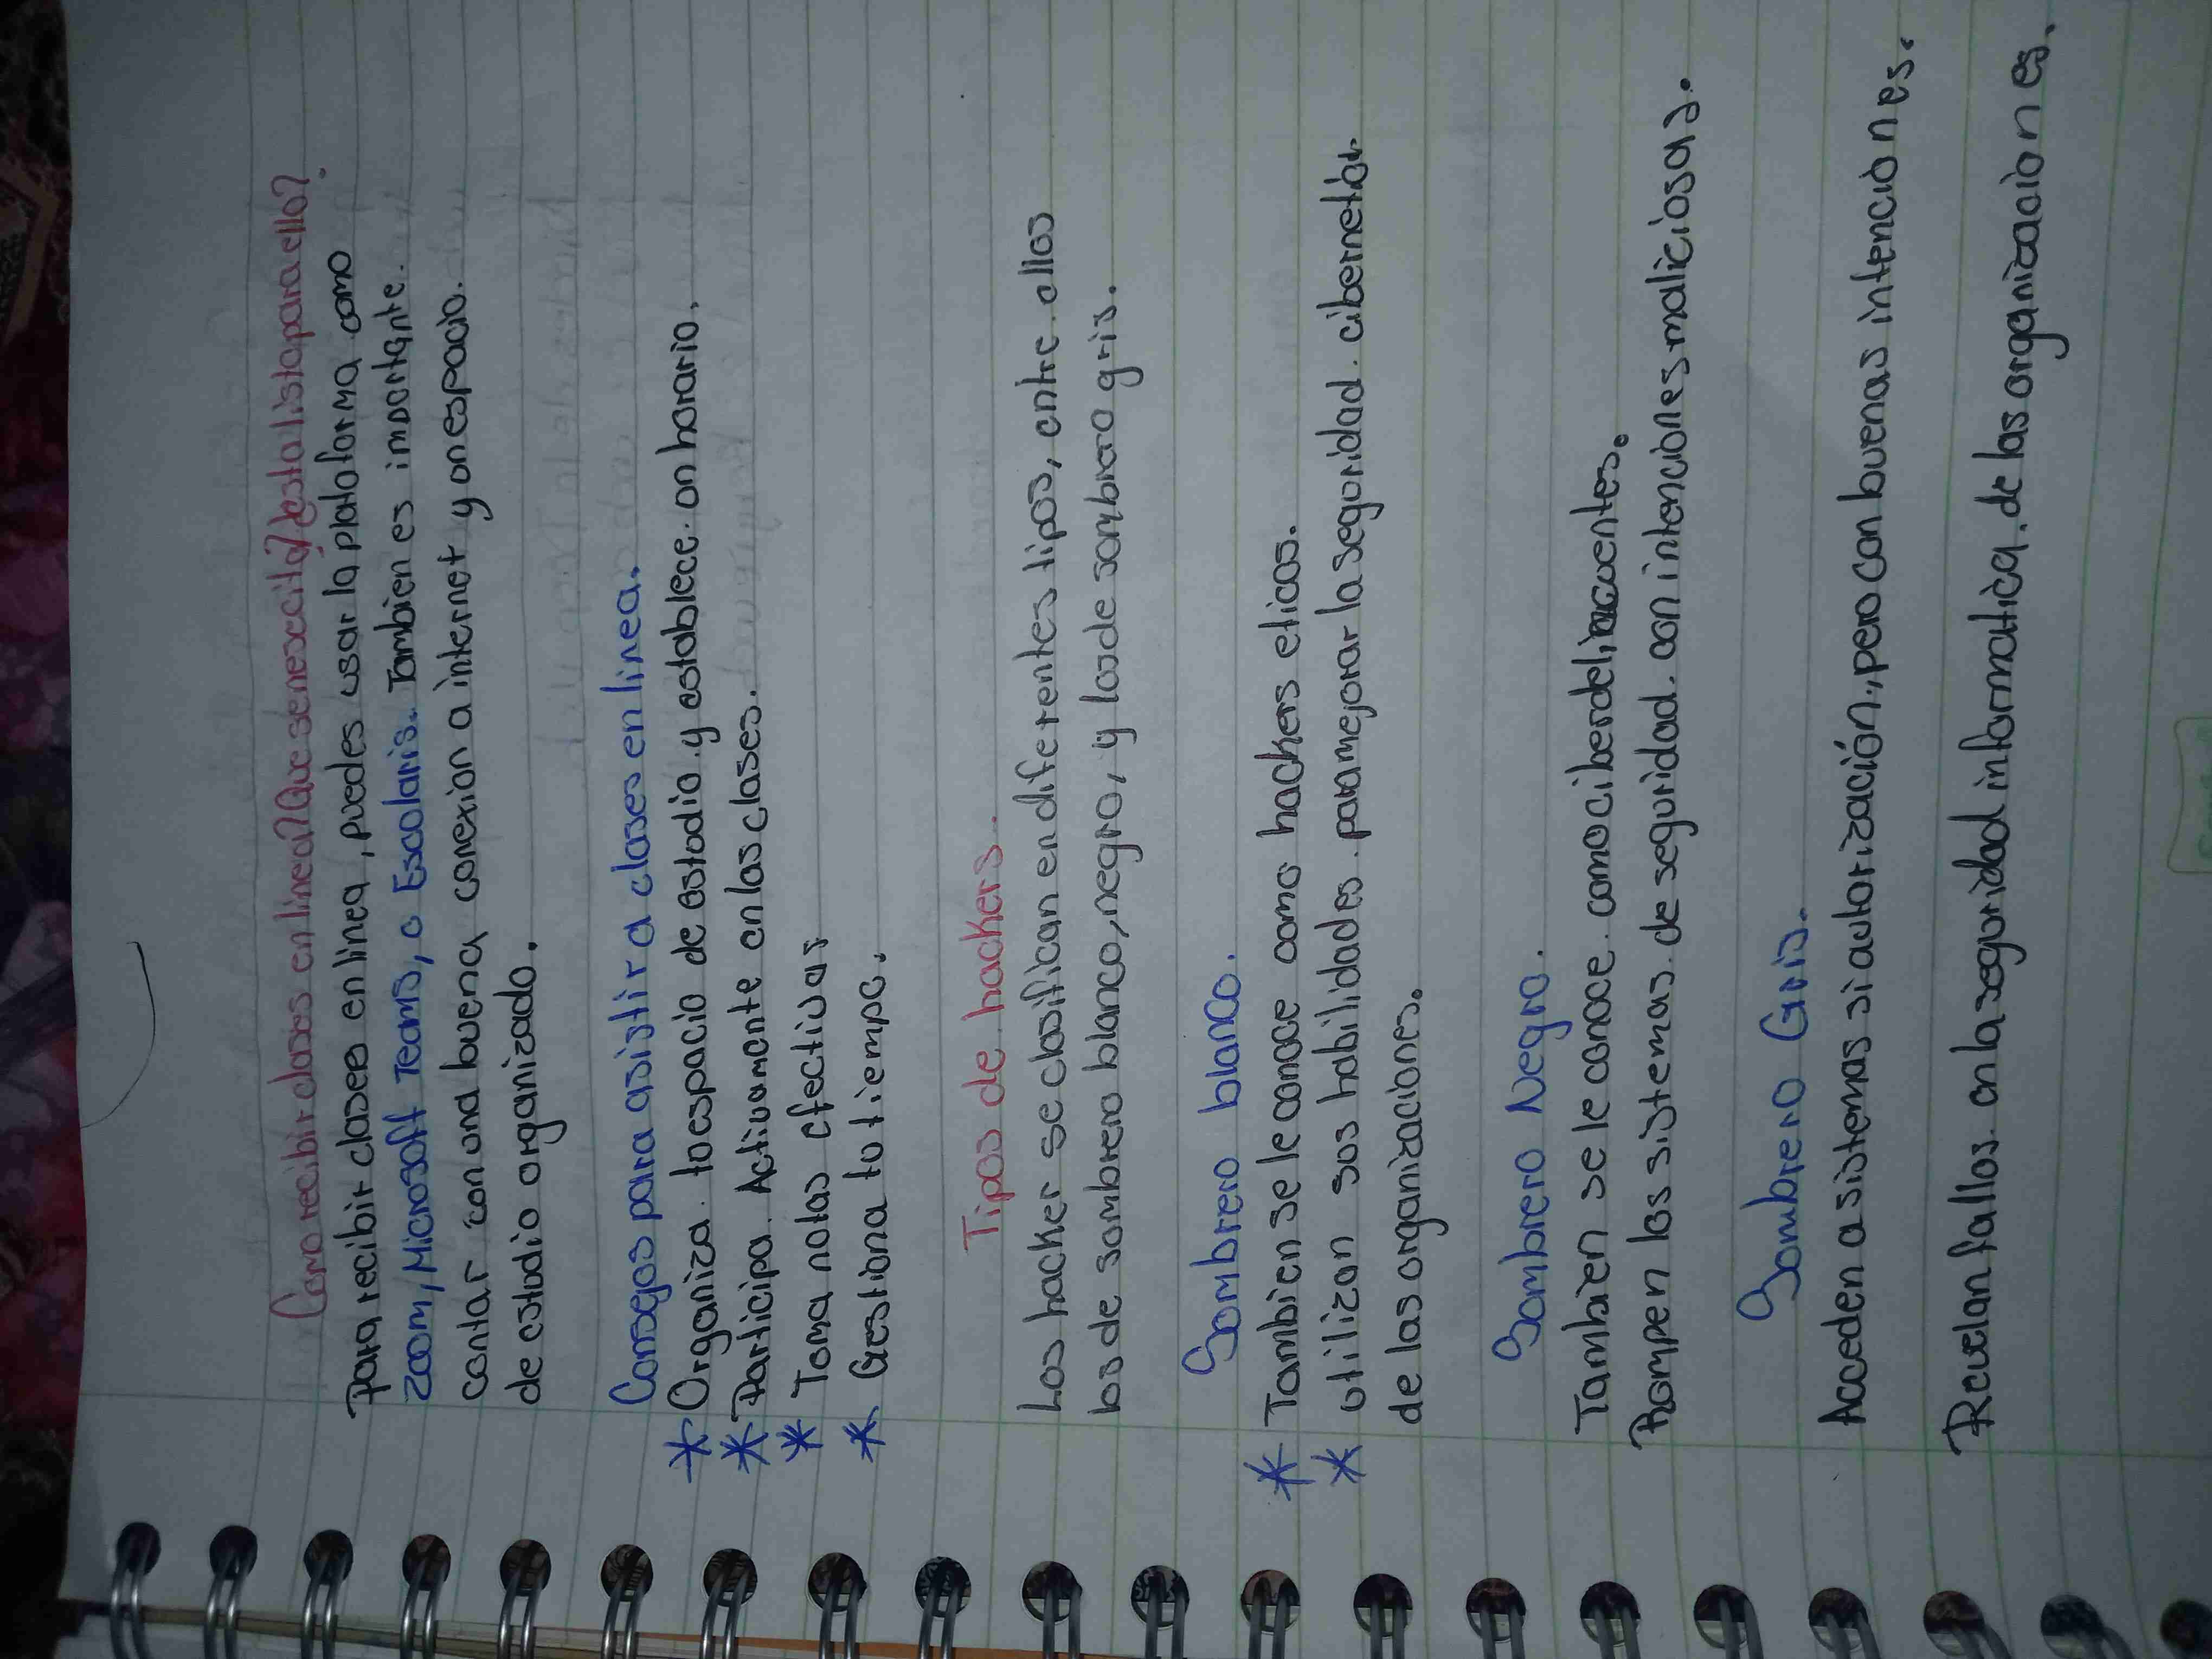 Como recibir clases en linea? Que se nesecita? ¿esta lista para ello?
Para recibir clases en linea, puedes usar la plataforma como
zoom, Microsoft Teams, o Escolaris. Tambien es importante
contar con una buena conexion a internet y un espacio
de estudio organizado.
Consejos para asistir a clases en linea.
* Organiza tu espacio de estudio y establece un horario.
* Participa Activamente en las clases.
* Toma notas efectivas
* Gestiona tu tiempo.
Tipos de hackers.
Los hacker se clasifican en diferentes tipos, entre ellos
los de sombrero blanco, negro, y los de sombrero gris.
Sombrero blanco.
* Tambien se le conoce como hackers eticos.
* utilizan sus habilidades para mejorar la seguridad cibernetica
de las organizaciones.
Sombrero Negro.
Tambien se le conoce como ciberdelincuentes.
Rompen los sistemas de seguridad con intenciones maliciosas.
Sombrero Gris.
Acceden a sistemas si autorización, pero con buenas intenciones.
Revelan fallos en la seguridad informatica de las organizaciones.